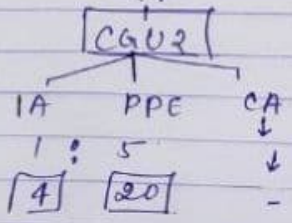 CGU2
IA PPE CA
1 : 5
4 20 -